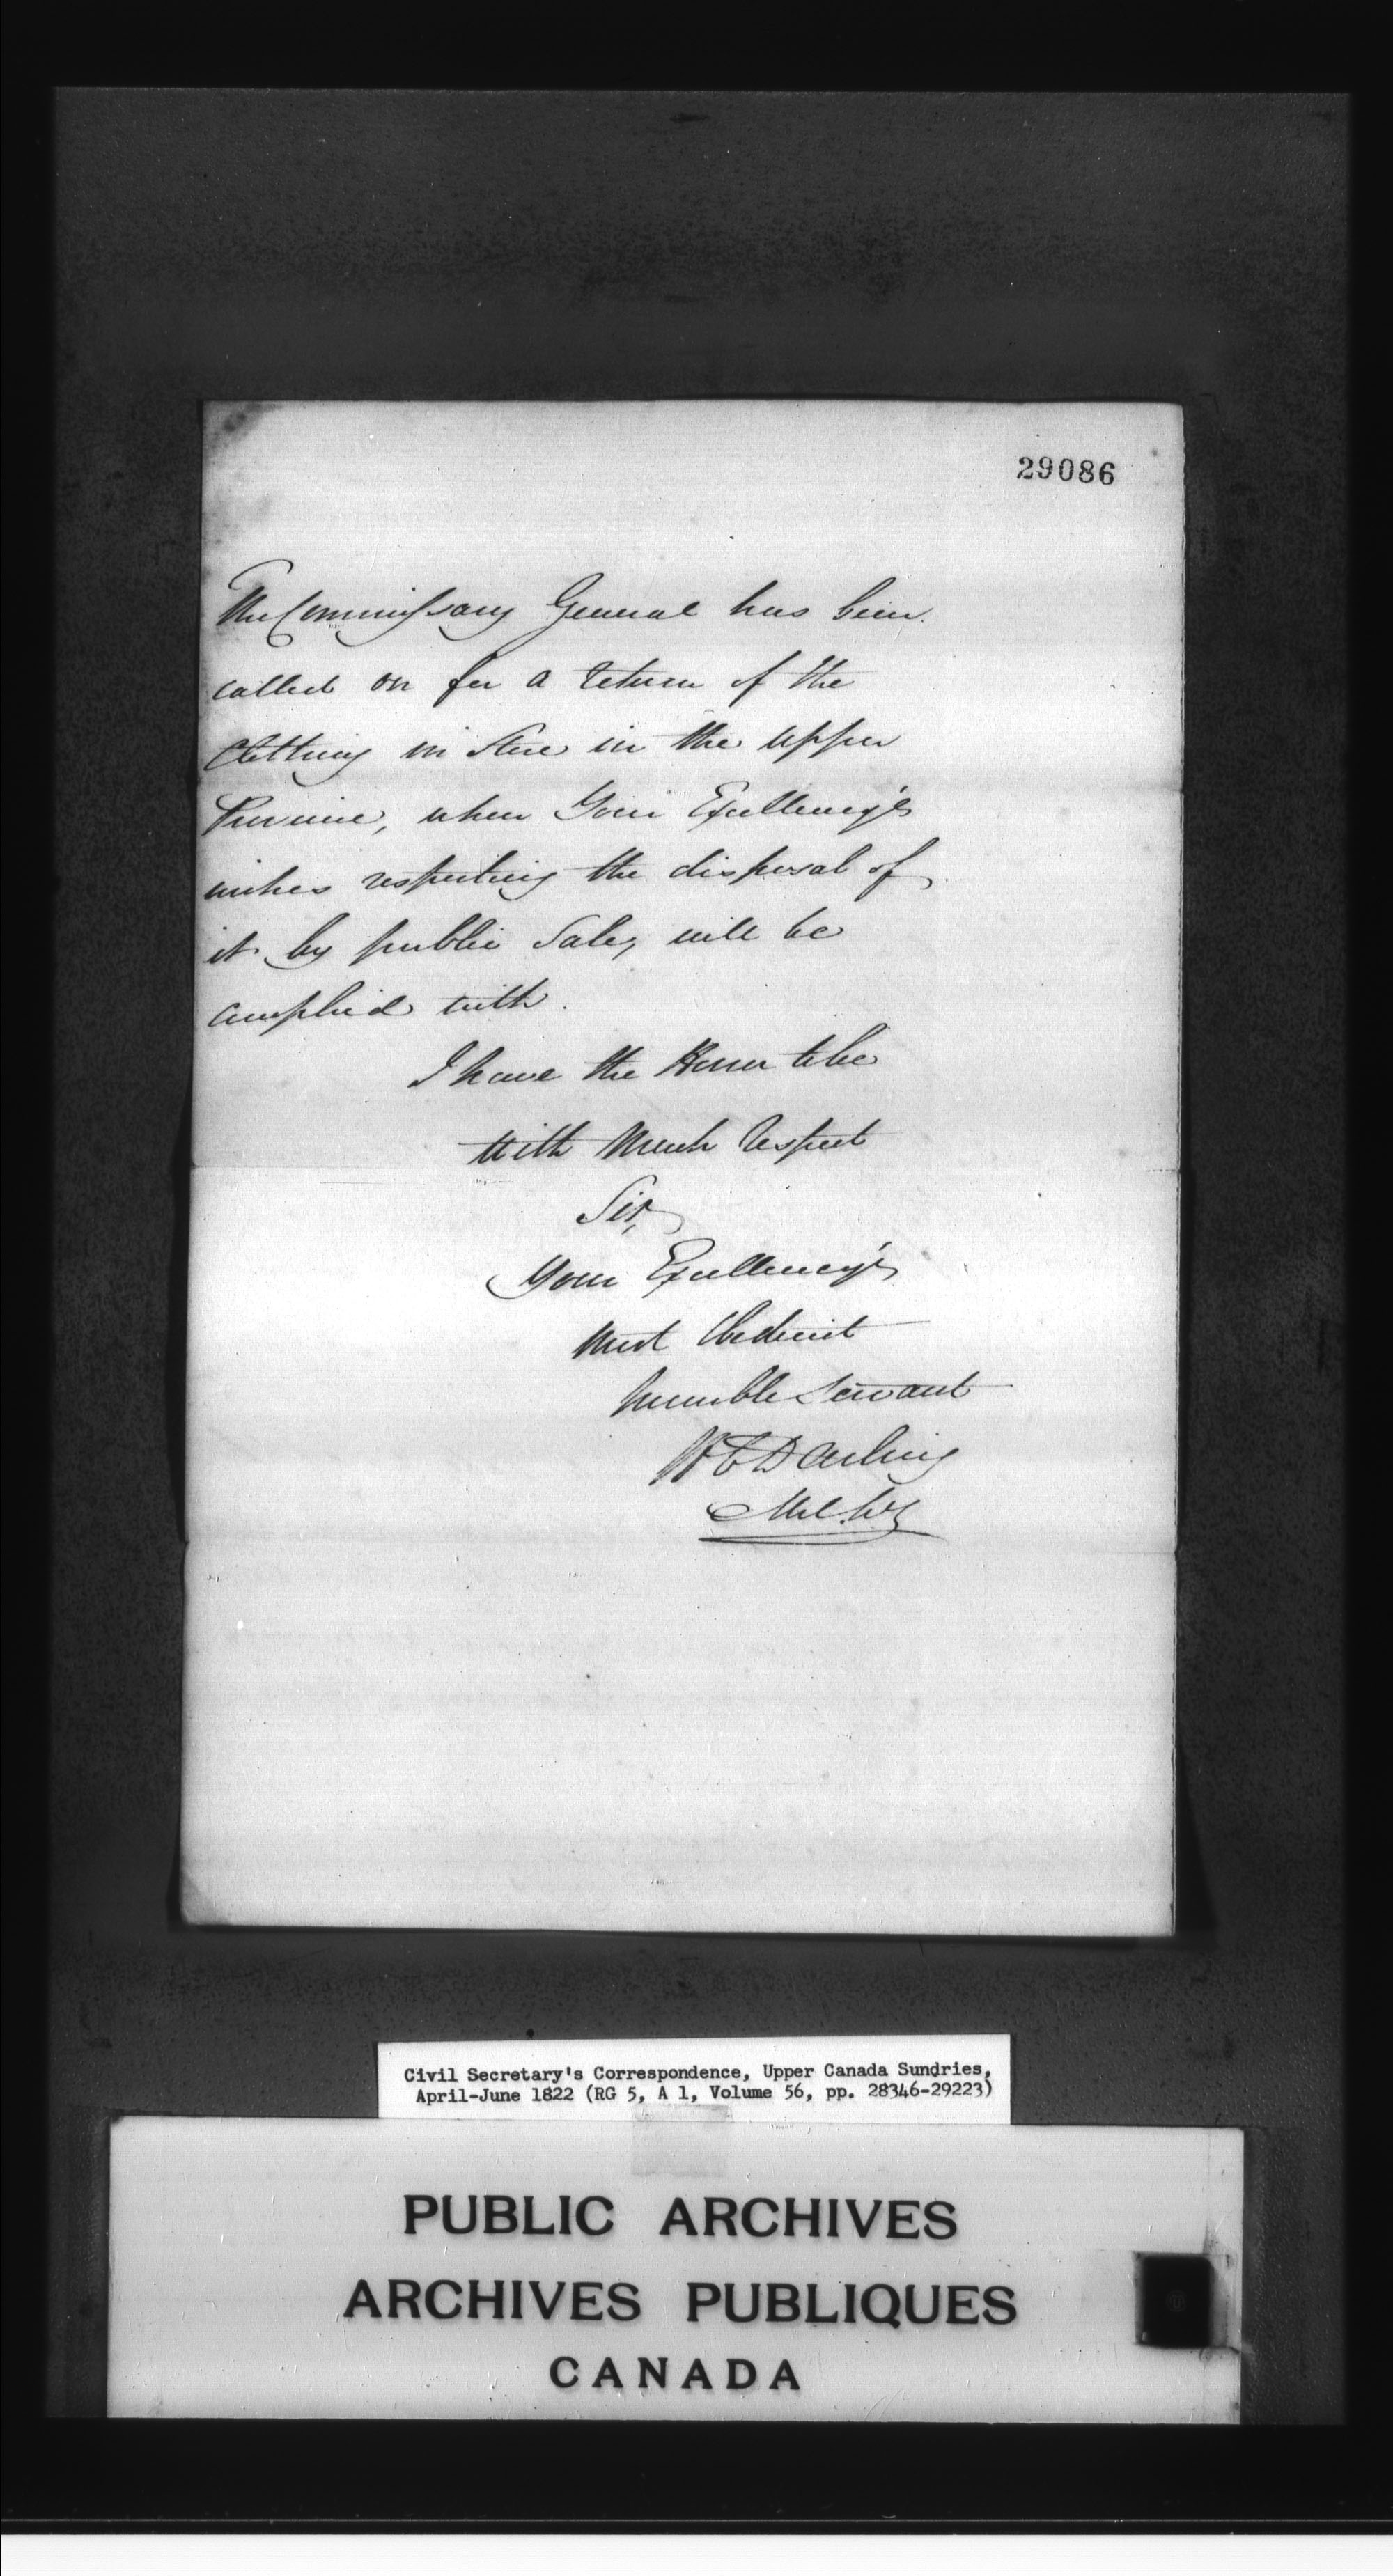 29086
The Commissary General has been
called on for a return of the
Clothing in Store in the Upper
Province, when Your Excellency's
wishes respecting the disposal of
it by public Sale, will be
complied with.
I have the Honor to be
With Much Respect
Sir,
Your Excellency's
Most Obedient
humble Servant
H C Darling
Mil. Sy
Civil Secretary's Correspondence, Upper Canada Sundries,
April-June 1822 (RG 5, A 1, Volume 56, pp. 28346-29223)
PUBLIC ARCHIVES
ARCHIVES PUBLIQUES
CANADA